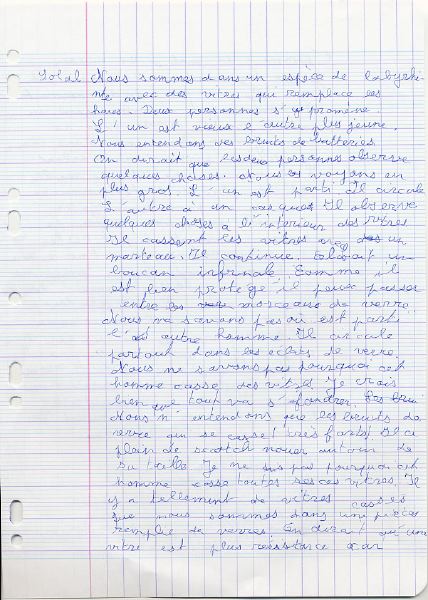 Solal Nous sommes dans un espèce de labyrhi-
nte avec des vitres qui remplace les
haies. Deux personnes s'y promène
L'un est vieux e autre plus jeune.
Nous entendons des bruits de batteries.
On durait que les deux personnes observe
quelques choses. Nous les voyons en
plus gros. L'un est parti il circule
L'autre à un casques Il observe
quelques choses a l'interieur des vitres
Il cassent les vitres avec un
marteau. Il continue. Cela fait un
boucan infernale. Comme il
est bien protegé il peux passer
entre les morceaux de verre
Nous ne savons pas où est parti
l'autre homme. Il circule
partout dans les eclats de verre.
Nous ne savons pas pourquoi cet
homme casse des vitres. Je crois
bien que tout va s'éfondrer.
Nous n'entendons que les bruits de
verre qui se casse! très fort!
plein de scotch nouer autour de
sa taille Je ne sais pas pourquoi cet
homme casse toutes ses ces vitres. Il
y a tellement de vitres casses
que nous sommes dans une pièces
remplie de verres. On dirait qu'une
vitre est plus résistance car